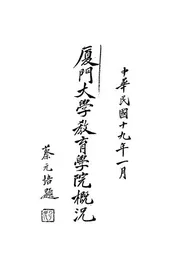 中華民國十九年一月
廈門大學教育學院概況
蔡元培題